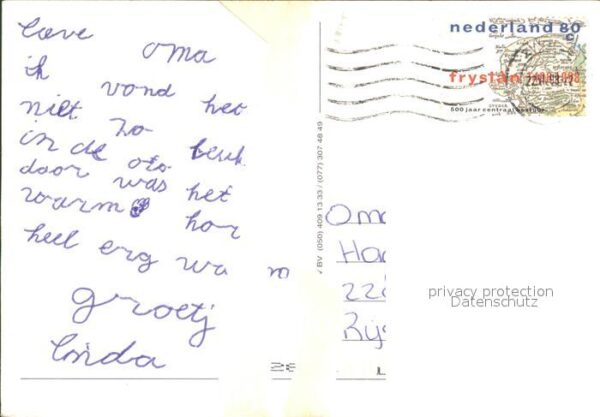 lieve oma
ik vond het
niet zo leuk
in de oto
daor was het
warm hor
heel erg wa m
groetj
linda
nederland 80 c
fryslân 1498-1998
500 jaar centraal bestuur
BV (050) 409 13 33 / (077) 307 48 49
Oma
Ha
22
Rijs
privacy protection
Datenschutz